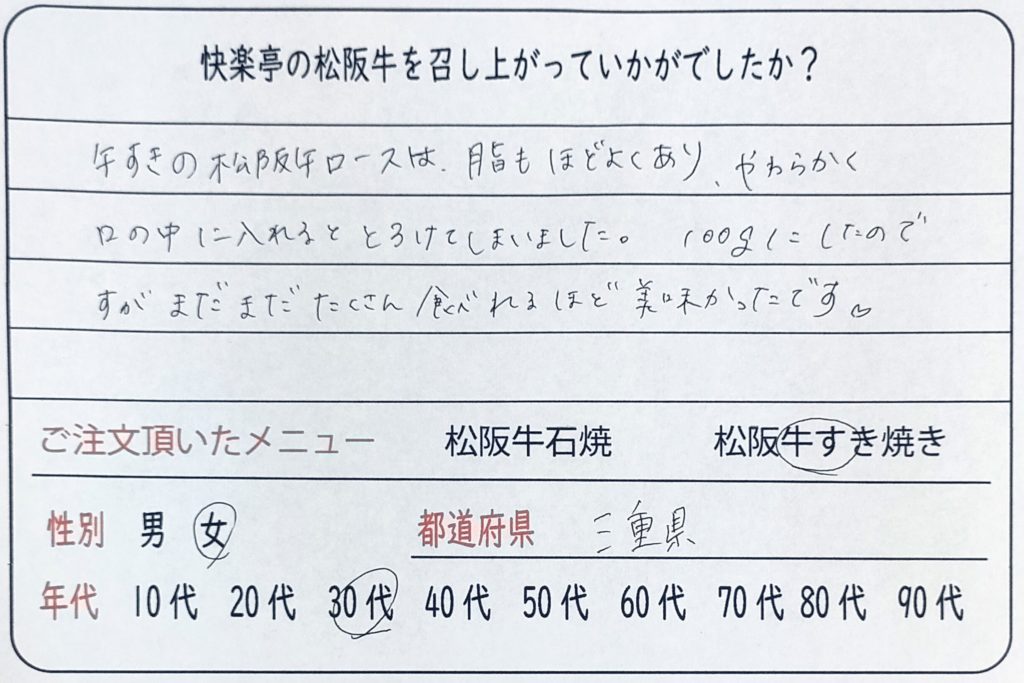 快楽亭の松阪牛を召し上がっていかがでしたか？
牛すきの松阪牛ロースは、脂もほどよくあり、やわらかく
口の中に入れるととろけてしまいました。 100gにしたので
すがまだまだたくさん食べれるほど美味かったです♡
ご注文頂いたメニュー 松阪牛石焼 松阪牛すき焼き
性別 男 女 都道府県 三重県
年代 10代 20代 30代 40代 50代 60代 70代 80代 90代